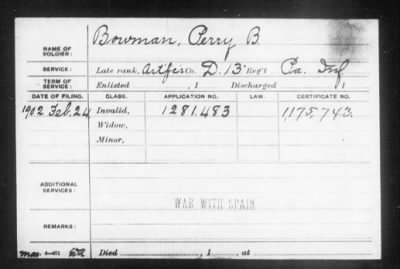 Bowman, Perry B.
NAME OF SOLDIER:
SERVICE: Late rank, Artifcr Co. D. 13" Reg't Pa. Inf
TERM OF SERVICE: Enlisted , 1 Discharged 1
DATE OF FILING. CLASS. APPLICATION NO. LAW. CERTIFICATE NO.
1902 Feb. 24 Invalid, 1281.483 1,175,743.
Widow,
Minor,
ADDITIONAL SERVICES:
WAR WITH SPAIN
REMARKS:
Died , 1 , at